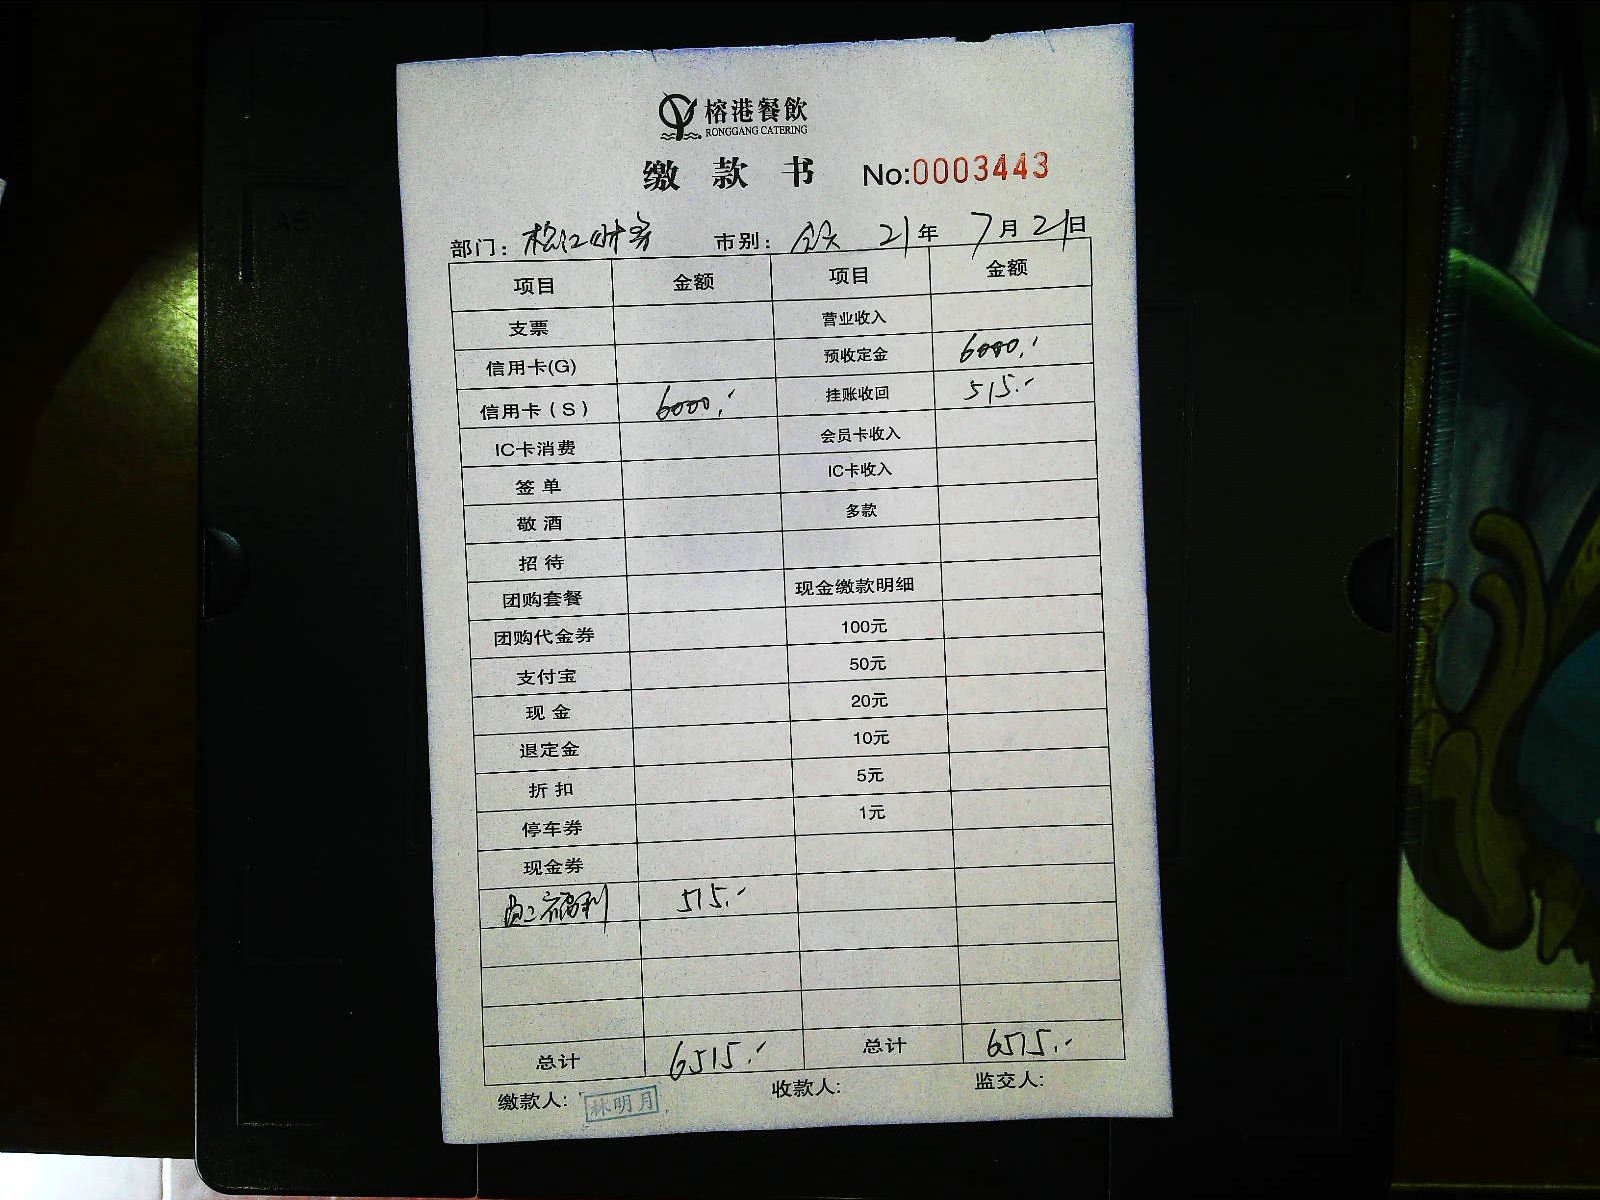 榕港餐飲
RONGGANG CATERING
缴款书 No:0003443
部门: 松江财务 市别: 全天 21年 7月21日
项目 金额 项目 金额
支票 营业收入
信用卡(G) 预收定金 6000.-
信用卡(S) 6000.- 挂账收回 515.-
IC卡消费 会员卡收入
签单 IC卡收入
敬酒 多款
招待
团购套餐 现金缴款明细
团购代金券 100元
支付宝 50元
现金 20元
退定金 10元
折扣 5元
停车券 1元
现金券
员工福利 515.-
总计 6515.- 总计 6515.-
缴款人: 林明月 收款人: 监交人: